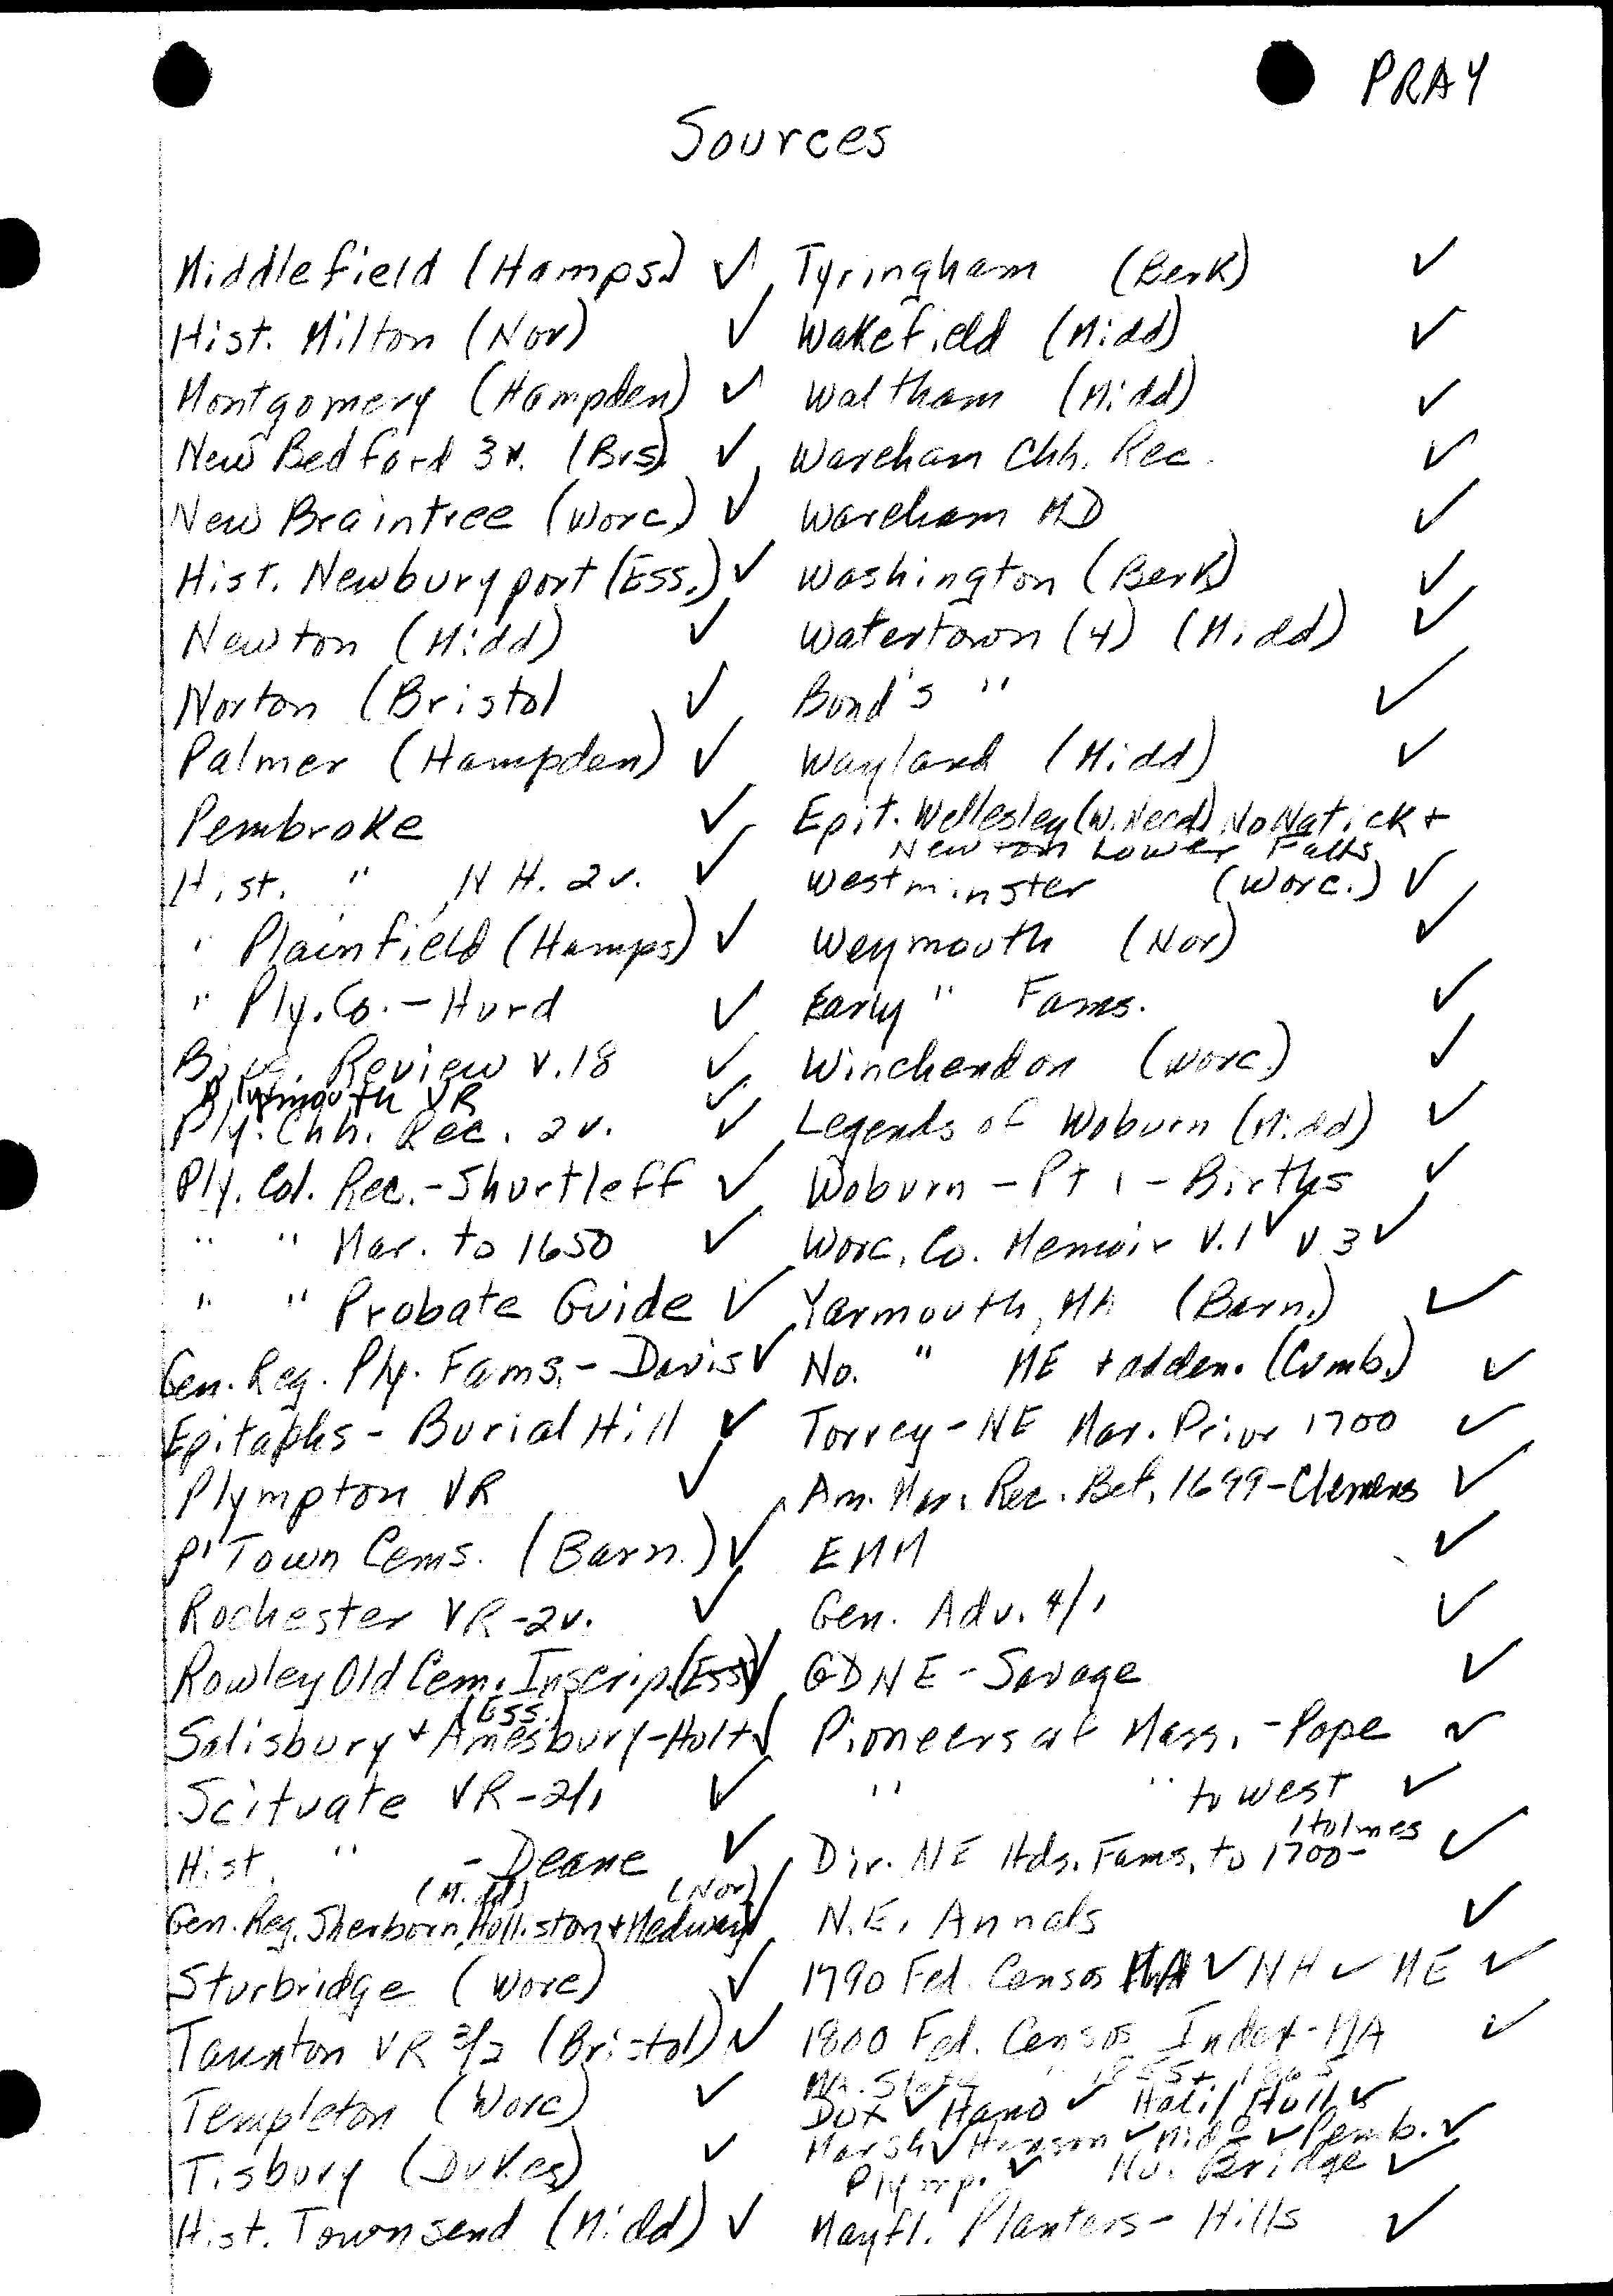 PRAY
Sources
Middlefield (Hamps.) ✓
Hist. Milton (Nor) ✓
Montgomery (Hampden) ✓
New Bedford 3v. (Brs) ✓
New Braintree (Worc.) ✓
Hist. Newburyport (Ess.) ✓
Newton (Midd) ✓
Norton (Bristol ✓
Palmer (Hampden) ✓
Pembroke ✓
Hist. " , N H. 2v. ✓
" Plainfield (Hamps) ✓
" Ply. Co. - Hurd ✓
Biog. Review v.18 ✓
Plymouth VR ✓
Ply. Chh. Rec. 2v. ✓
Ply. Col. Rec. - Shurtleff ✓
" " Mar. to 1650 ✓
" " Probate Guide ✓
Gen. Reg. Ply. Fams. - Davis ✓
Epitaphs - Burial Hill ✓
Plympton VR ✓
P'Town Cems. (Barn.) ✓
Rochester VR - 2v. ✓
Rowley Old Cem. Inscrip. (Ess) ✓
(Ess.)
Salisbury + Amesbury - Hoyt ✓
Scituate VR - 2/1 ✓
Hist. " - Deane ✓
(Midd) (Nor)
Gen. Reg. Sherborn, Holliston + Medway ✓
Sturbridge (Worc) ✓
Taunton VR 3/2 (Bristol) ✓
Templeton (Worc) ✓
Tisbury (Dukes) ✓
Hist. Townsend (Midd) ✓
Tyringham (Berk) ✓
Wakefield (Midd) ✓
Waltham (Midd) ✓
Wareham Chh. Rec. ✓
Wareham MD ✓
Washington (Berk) ✓
Watertown (4) (Midd) ✓
Bond's " ✓
Wayland (Midd) ✓
Epit. Wellesley (W. Need) No Natick +
Newton Lower Falls
Westminster (Worc.) ✓
Weymouth (Nor) ✓
Early " Fams. ✓
Winchendon (Worc.) ✓
Legends of Woburn (Midd) ✓
Woburn - Pt 1 - Births ✓
Worc. Co. Memoir V.1 ✓ V 3 ✓
Yarmouth, MA (Barn.) ✓
No. " ME + adden. (Cumb.) ✓
Torrey - NE Mar. Prior 1700 ✓
Am. Mar. Rec. Bef. 1699 - Clemens ✓
EMM ✓
Gen. Adv. 4/1 ✓
GDNE - Savage ✓
Pioneers of Mass. - Pope ✓
" " to West ✓
Holmes
Dir. NE Hds. Fams. to 1700 - ✓
N.E. Annals ✓
1790 Fed. Census MA ✓ NH ✓ ME ✓
1800 Fed. Census Index - MA ✓
MA. State " 1855 + 1865
Dux ✓ Hano ✓ Halif Hull ✓
Marsh ✓ Hanson ✓ Midd ✓ Pemb. ✓
Plymp. ✓ Bridge ✓
Mayfl. Planters - Hills ✓